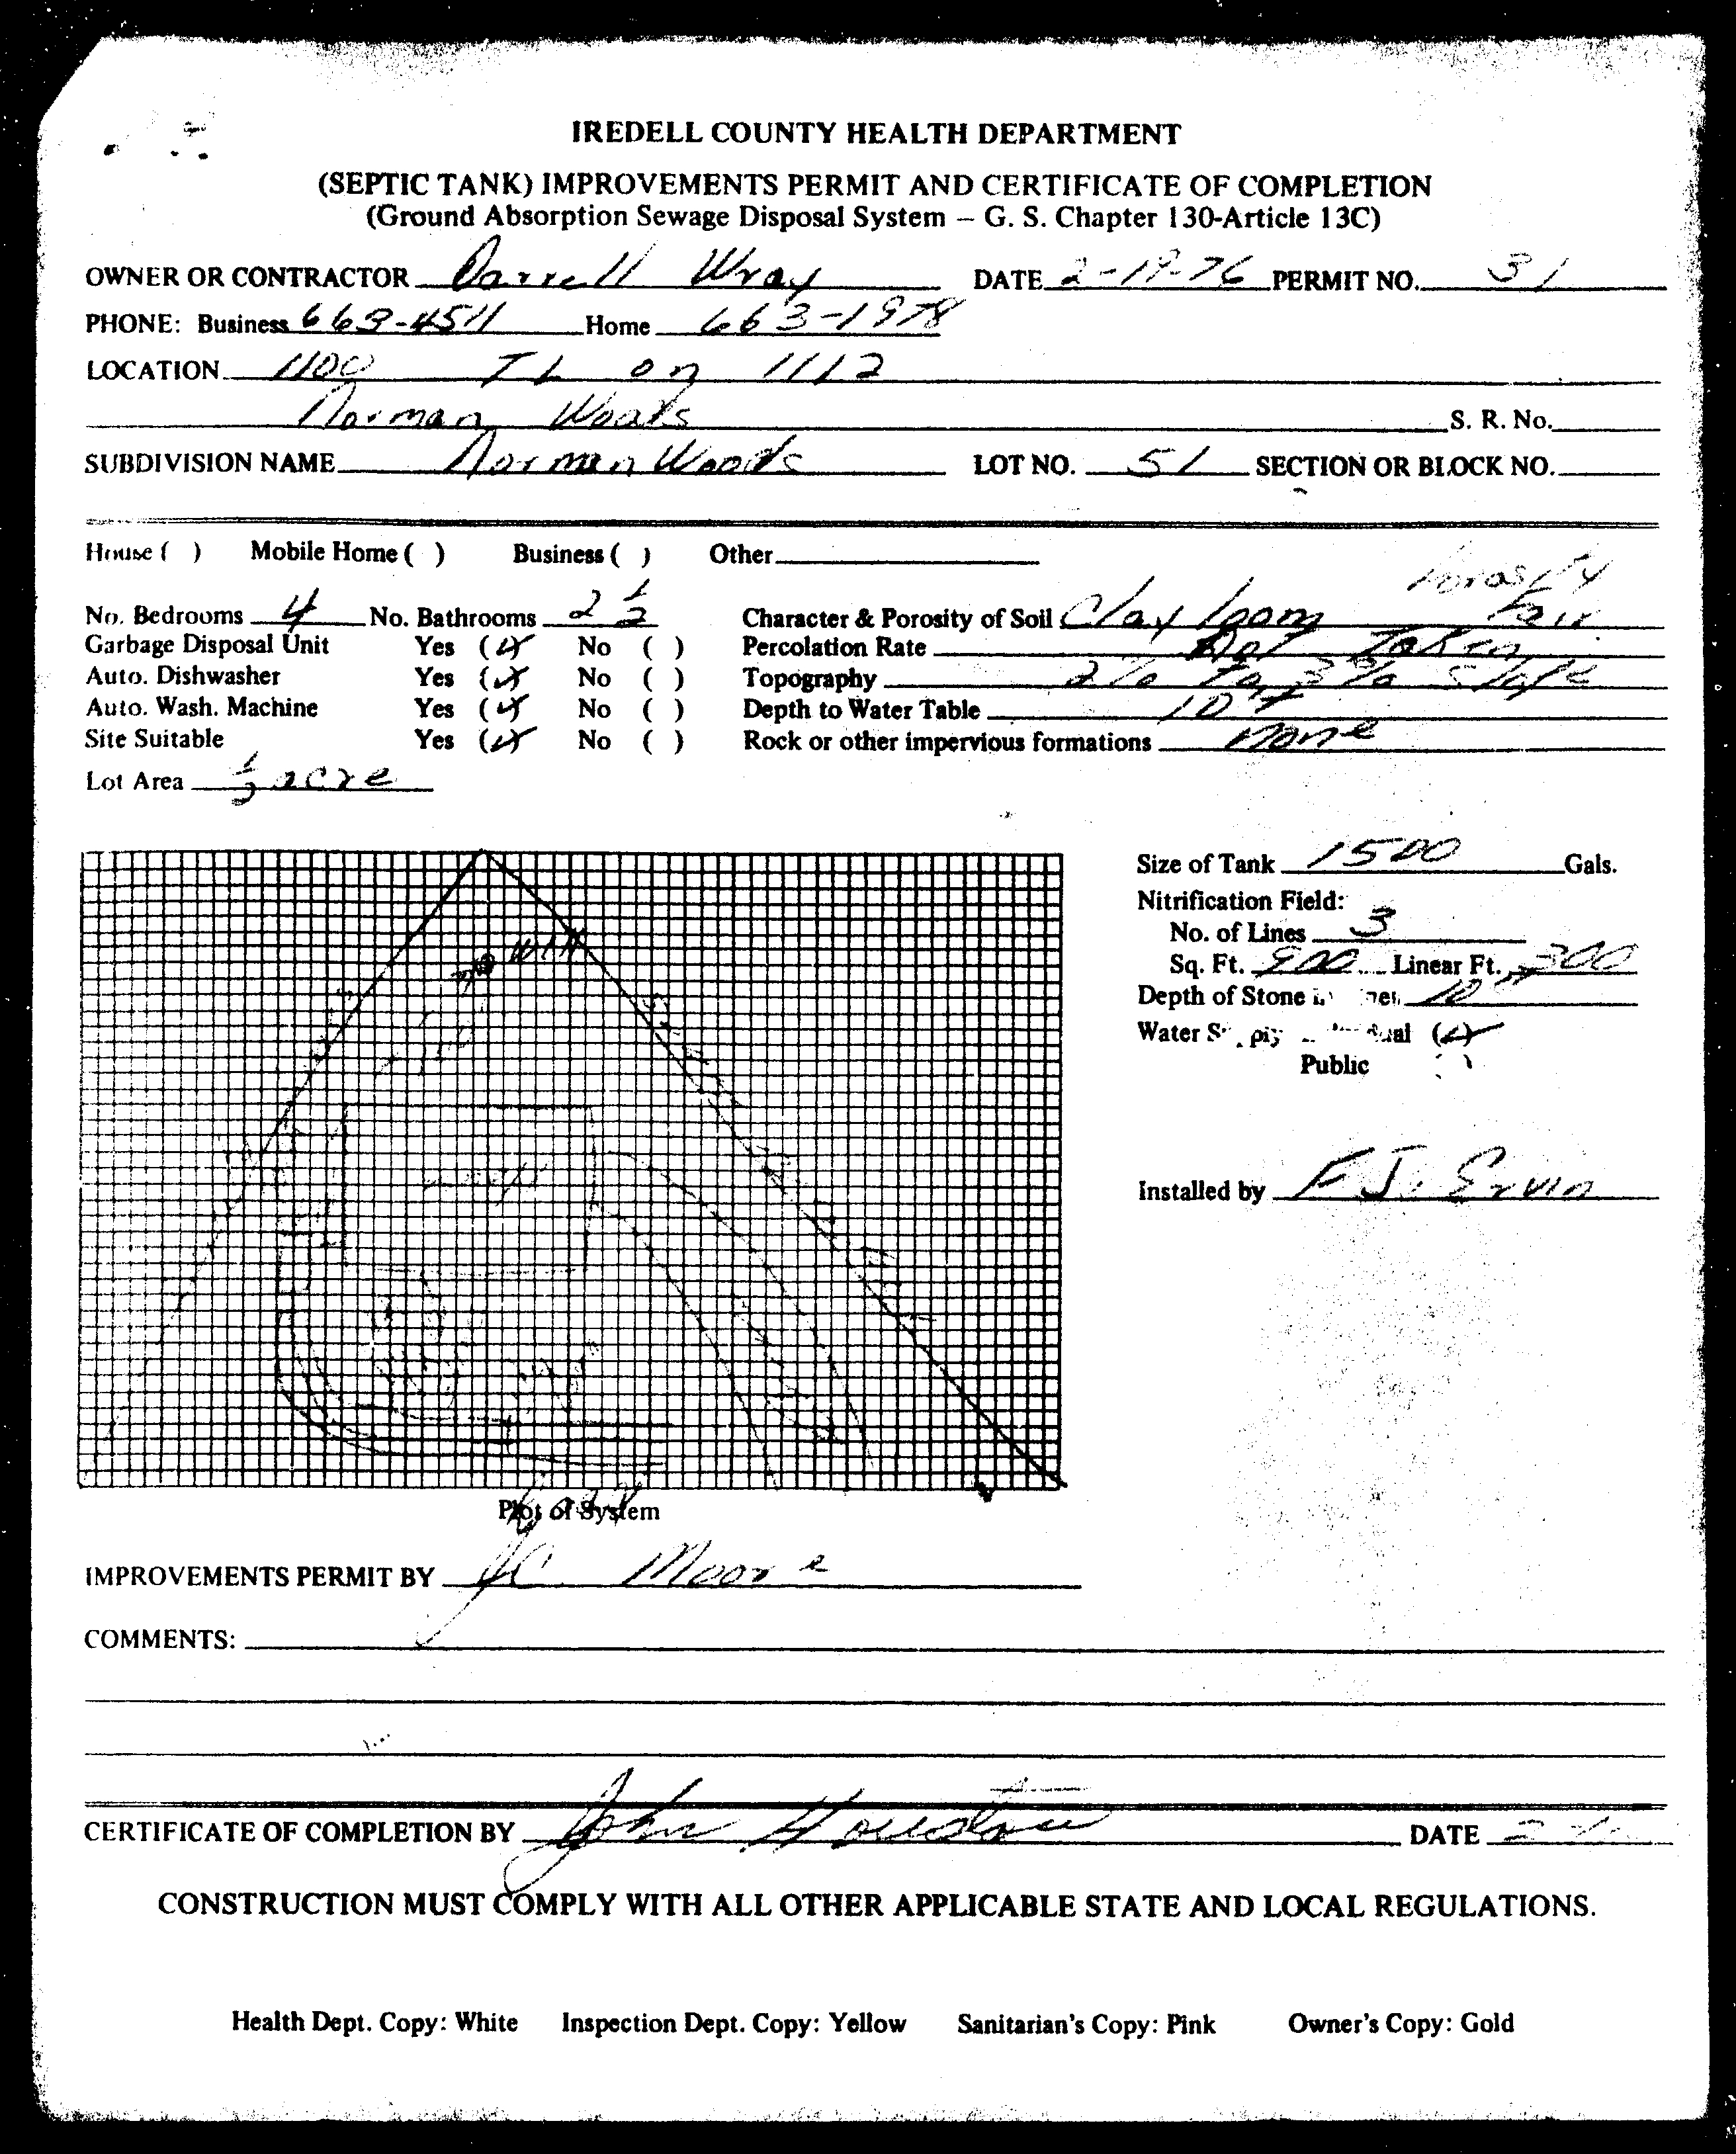 IREDELL COUNTY HEALTH DEPARTMENT
(SEPTIC TANK) IMPROVEMENTS PERMIT AND CERTIFICATE OF COMPLETION
(Ground Absorption Sewage Disposal System – G. S. Chapter 130-Article 13C)
OWNER OR CONTRACTOR Darrell Wray DATE 2-19-76 PERMIT NO. 31
PHONE: Business 663-4511 Home 663-1978
LOCATION 1100 TL on 1112
Norman Woods S. R. No.
SUBDIVISION NAME Norman Woods LOT NO. 51 SECTION OR BLOCK NO.
House ( ) Mobile Home ( ) Business ( ) Other
Porosity
No. Bedrooms 4 No. Bathrooms 2 1/2 Character & Porosity of Soil Clay loom Fair
Garbage Disposal Unit Yes (✓) No ( ) Percolation Rate Not Taken
Auto. Dishwasher Yes (✓) No ( ) Topography 2% To 3% Slope
Auto. Wash. Machine Yes (✓) No ( ) Depth to Water Table 10'+
Site Suitable Yes (✓) No ( ) Rock or other impervious formations none
Lot Area 1/2 acre
Size of Tank 1500 Gals.
Nitrification Field:
No. of Lines 3
Sq. Ft. 900 Linear Ft. 300
Depth of Stone 12"
Water
(✓)
Public ( )
Well
Installed by F J. Ervin
Plot of System
IMPROVEMENTS PERMIT BY JC Moore
COMMENTS:
CERTIFICATE OF COMPLETION BY John Houston DATE
CONSTRUCTION MUST COMPLY WITH ALL OTHER APPLICABLE STATE AND LOCAL REGULATIONS.
Health Dept. Copy: White Inspection Dept. Copy: Yellow Sanitarian's Copy: Pink Owner's Copy: Gold